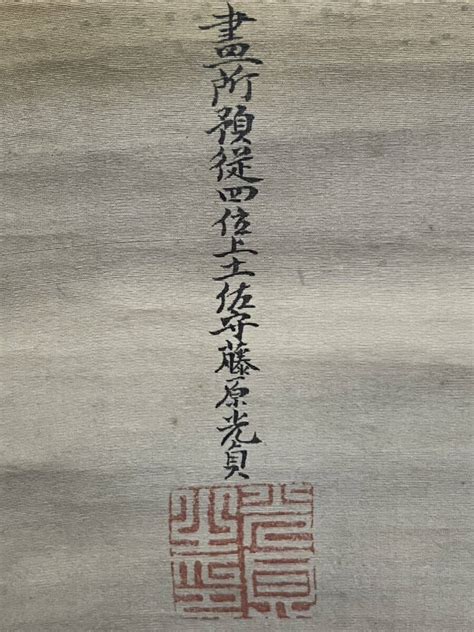 畫所預從四位上土佐守藤原光貞